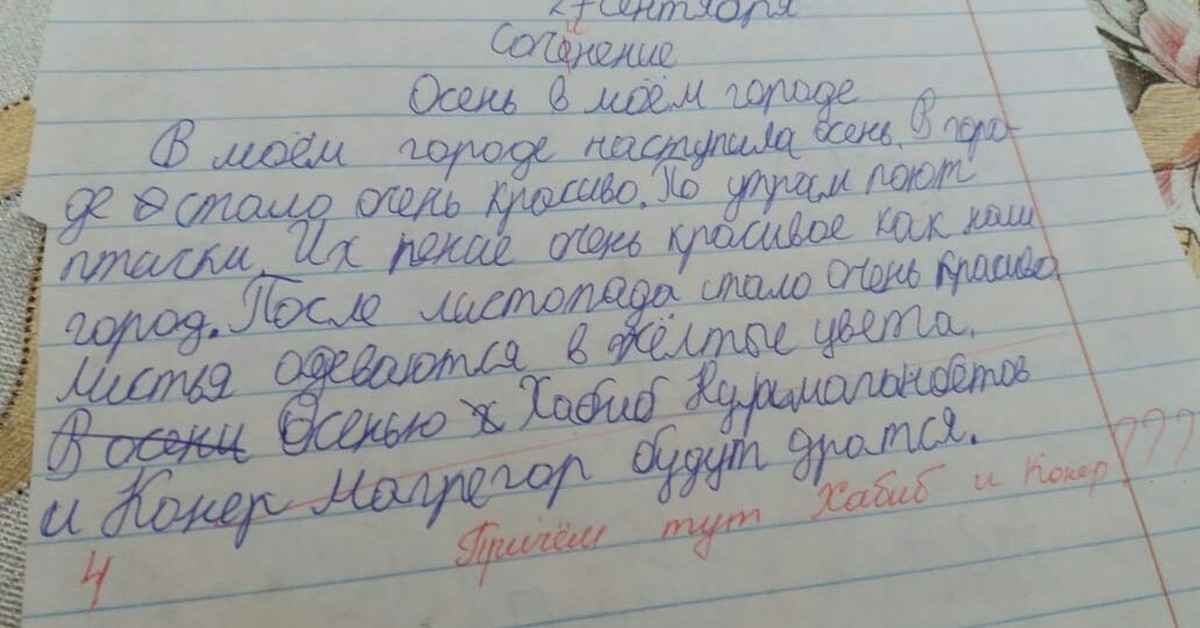 27 сентября
Сочинение
Осень в моём городе
В моём городе наступила осень. В горо-
де стало очень красиво. По утрам поют
птички. Их пение очень красивое как наш
город. После листопада стало очень красиво
Листья одеваются в жёлтые цвета.
В осени Осенью х Хабиб Нурмагамбетов
и Конер Магрегор будут дратся.
4 Причём тут Хабиб и Конер ???